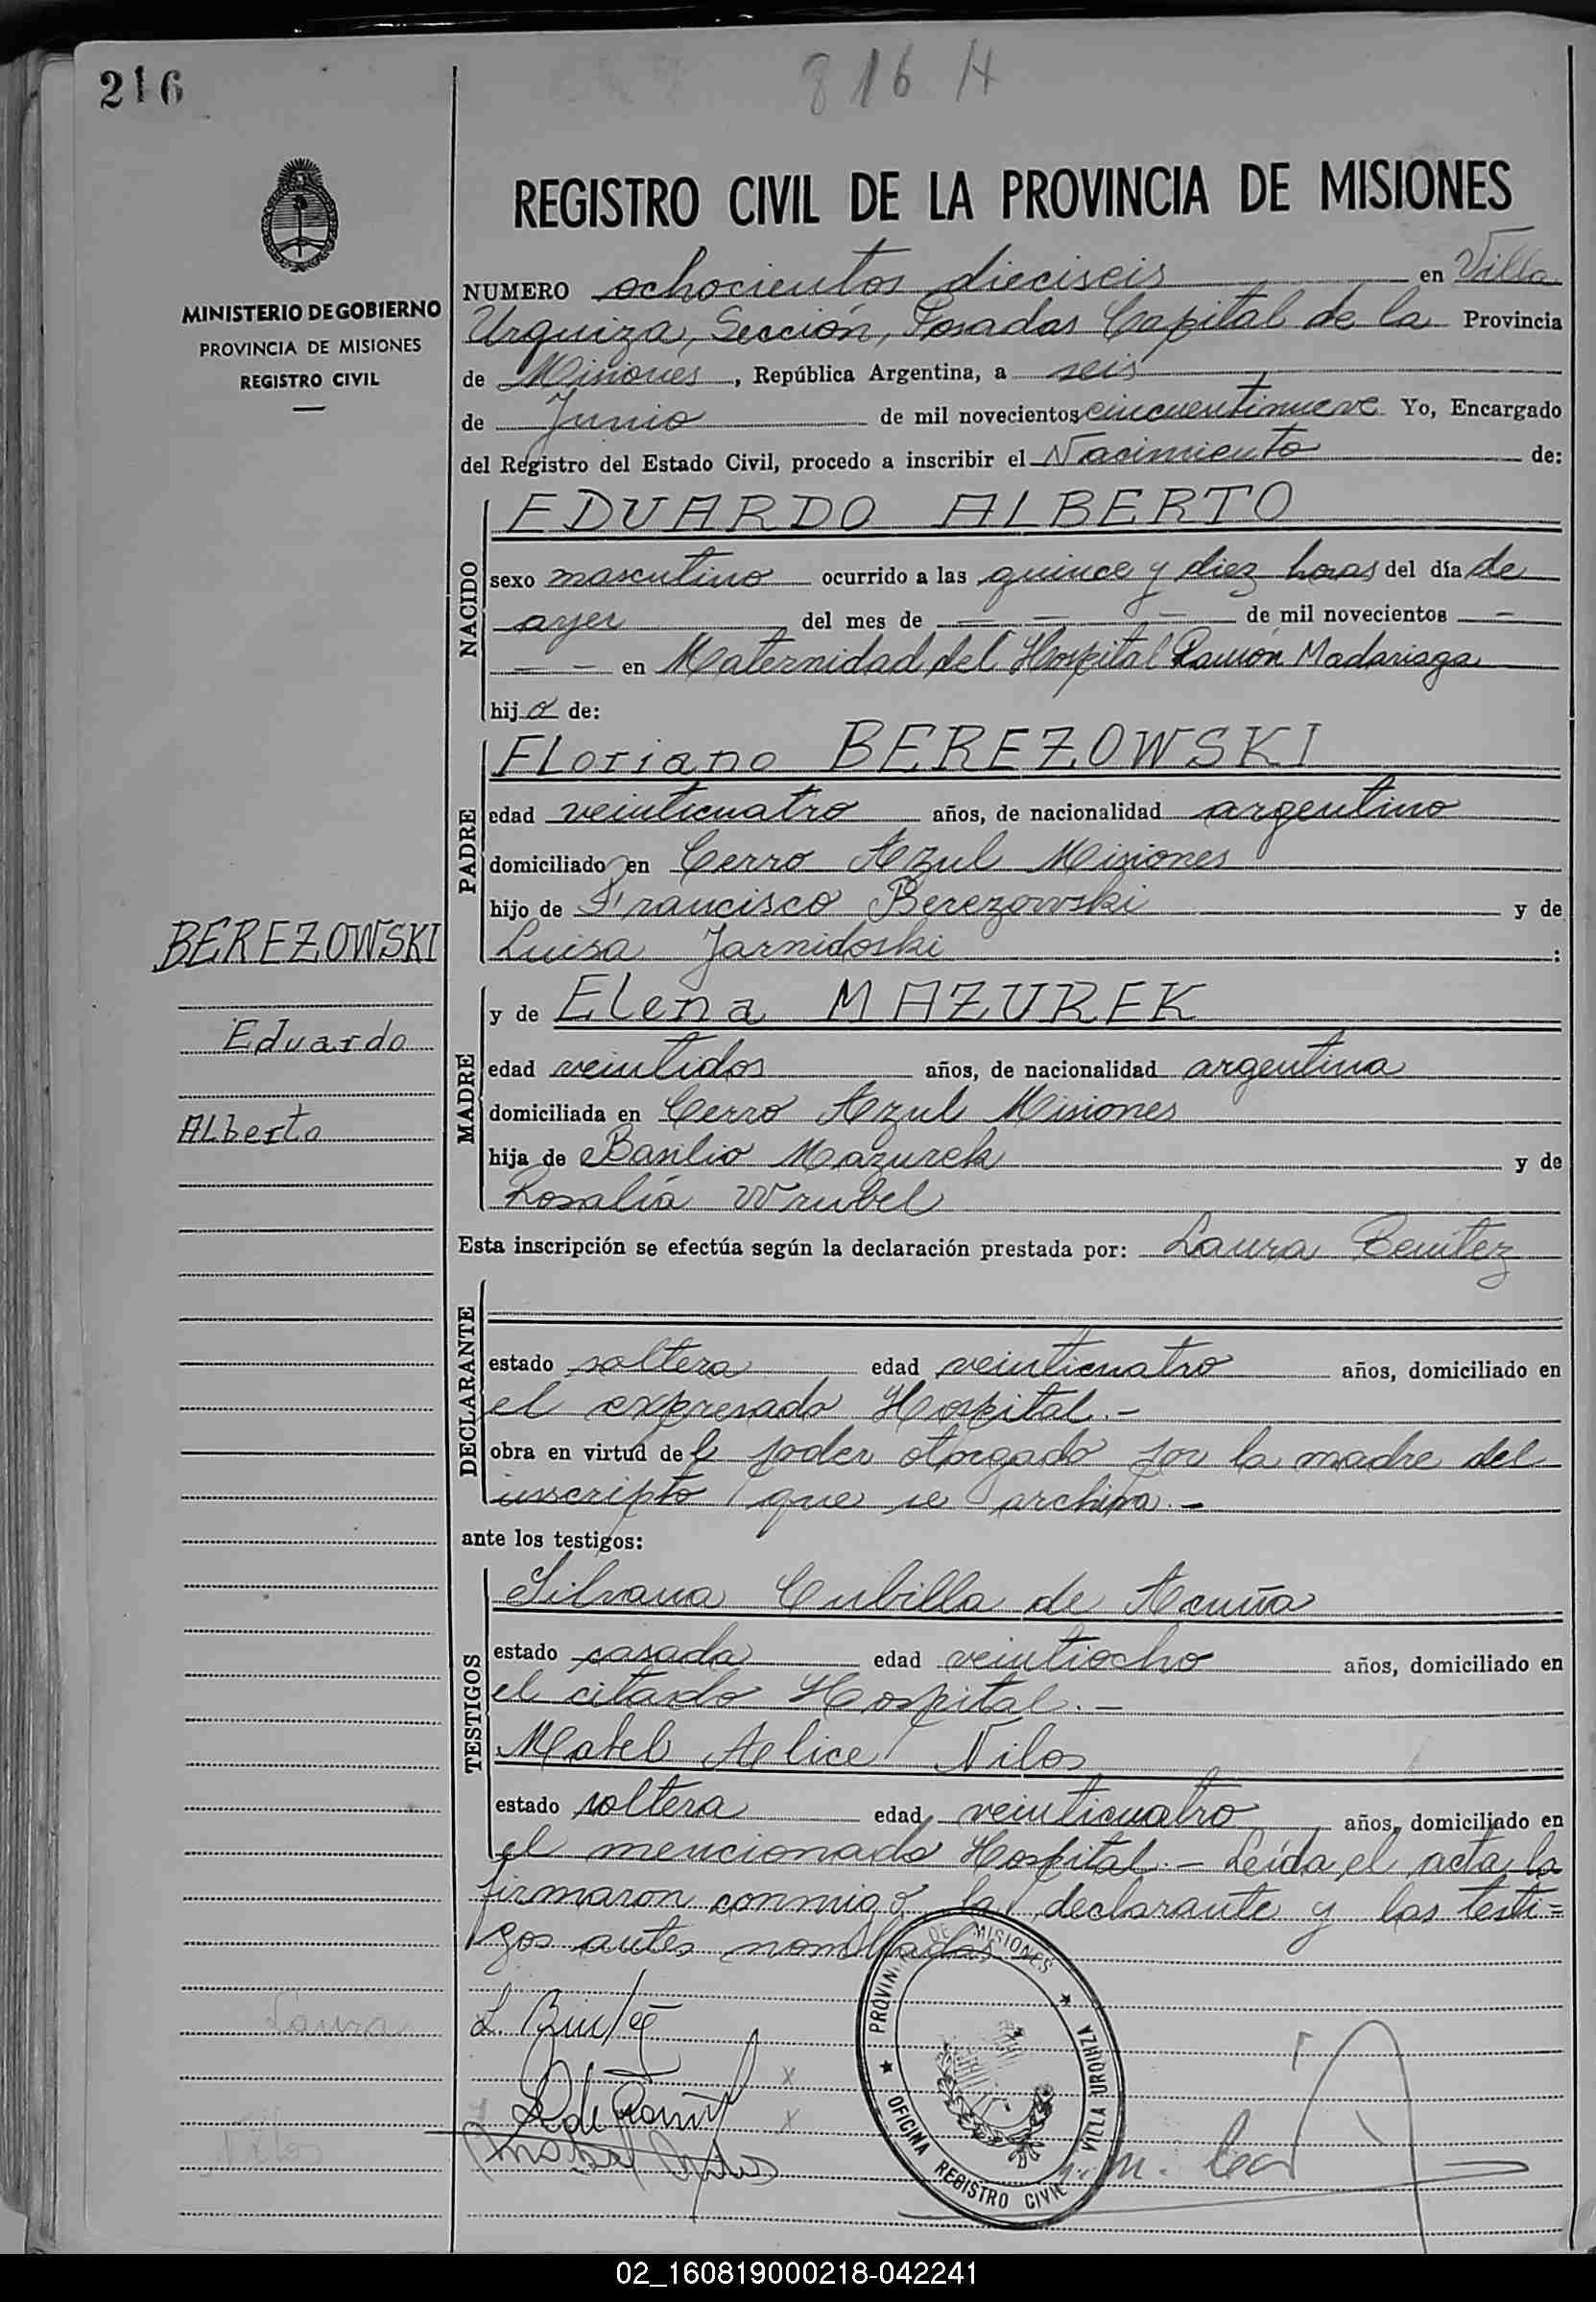 216
816 H
MINISTERIO DE GOBIERNO
PROVINCIA DE MISIONES
REGISTRO CIVIL
REGISTRO CIVIL DE LA PROVINCIA DE MISIONES
NUMERO ochocientos dieciseis en Villa
Urquiza, Sección, Posadas Capital de la Provincia
de Misiones, República Argentina, a seis
de Junio de mil novecientos cincuentinueve Yo, Encargado
del Registro del Estado Civil, procedo a inscribir el Nacimiento de:
NACIDO
EDUARDO ALBERTO
sexo masculino ocurrido a las quince y diez horas del día de
ayer del mes de — — — de mil novecientos —
— — en Maternidad del Hospital Ramón Madariaga
hijo de:
PADRE
Floriano BEREZOWSKI
edad veinticuatro años, de nacionalidad argentino
domiciliado en Cerro Azul Misiones
hijo de Francisco Berezowski y de
Luisa Jarnidoski :
MADRE
y de Elena MAZUREK
edad veintidos años, de nacionalidad argentina
domiciliada en Cerro Azul Misiones
hija de Basilio Mazurek y de
Rosalía Wrubel
BEREZOWSKI
Eduardo
Alberto
Esta inscripción se efectúa según la declaración prestada por: Laura Benitez
DECLARANTE
estado soltera edad veinticuatro años, domiciliado en
el expresado Hospital.-
obra en virtud del poder otorgado por la madre del
inscripto que se archiva.-
ante los testigos:
TESTIGOS
Silvana Cubilla de Acuña
estado casada edad veintiocho años, domiciliado en
el citado Hospital.-
Mabel Alice Nilos
estado soltera edad veinticuatro años, domiciliado en
el mencionado Hospital.- Leída el acta la
firmaron conmigo la declarante y los testi=
gos antes nombrados
Laura
Nilos
L.
PROVINCIA DE MISIONES
VILLA URQUIZA
OFICINA REGISTRO CIVIL
02_160819000218-042241